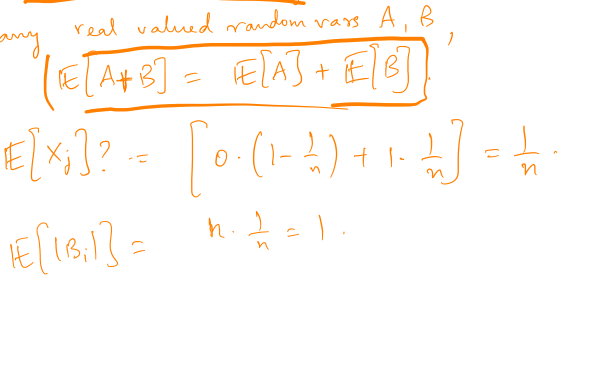 any real valued random vars A, B,
E[A+B] = E[A] + E[B].
E[Xj]? = [0·(1-1/n) + 1·1/n] = 1/n.
E[|Bi|] = n·1/n = 1.